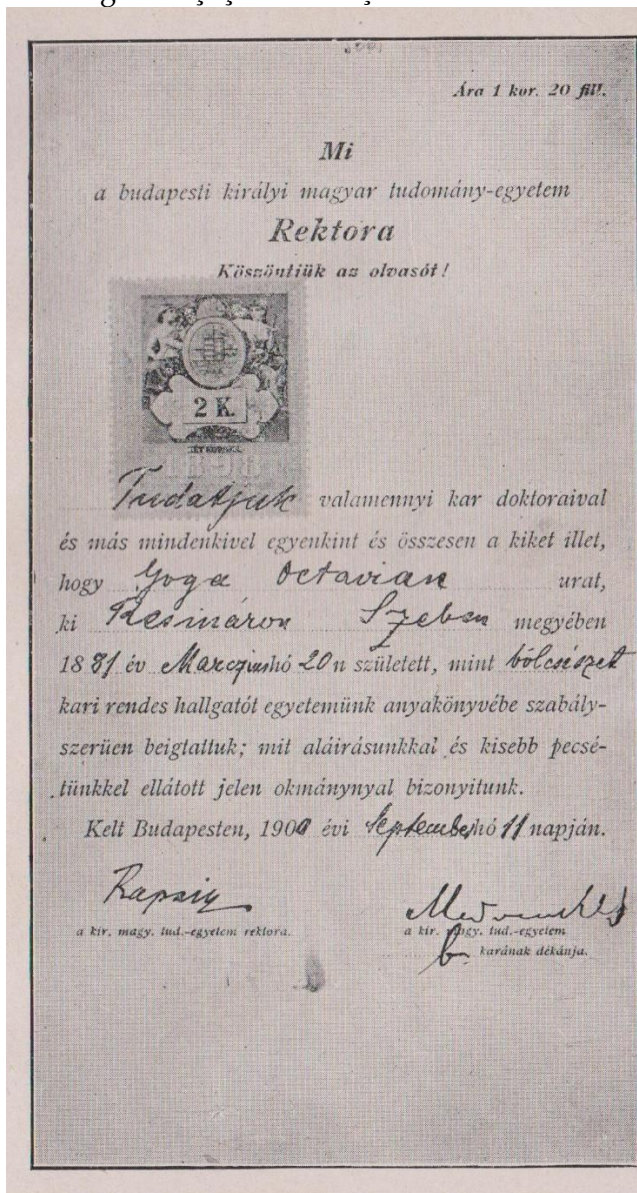 Ára 1 kor. 20 fill.
Mi
a budapesti királyi magyar tudomány-egyetem
Rektora
Köszöntjük az olvasót!
2 K.
Tudatjuk valamennyi kar doktoraival
és más mindenkivel egyenkint és összesen a kiket illet,
hogy Goga Octavian urat,
ki Resináron Szeben megyében
1881 év Marczius hó 20n született, mint bölcsészet
kari rendes hallgatót egyetemünk anyakönyvébe szabály-
szerüen beigtattuk; mit aláirásunkkal és kisebb pecsé-
tünkkel ellátott jelen okmánynyal bizonyitunk.
Kelt Budapesten, 1900 évi September hó 11 napján.
a kir. magy. tud.-egyetem rektora.
a kir. magy. tud.-egyetem
b. karának dékánja.